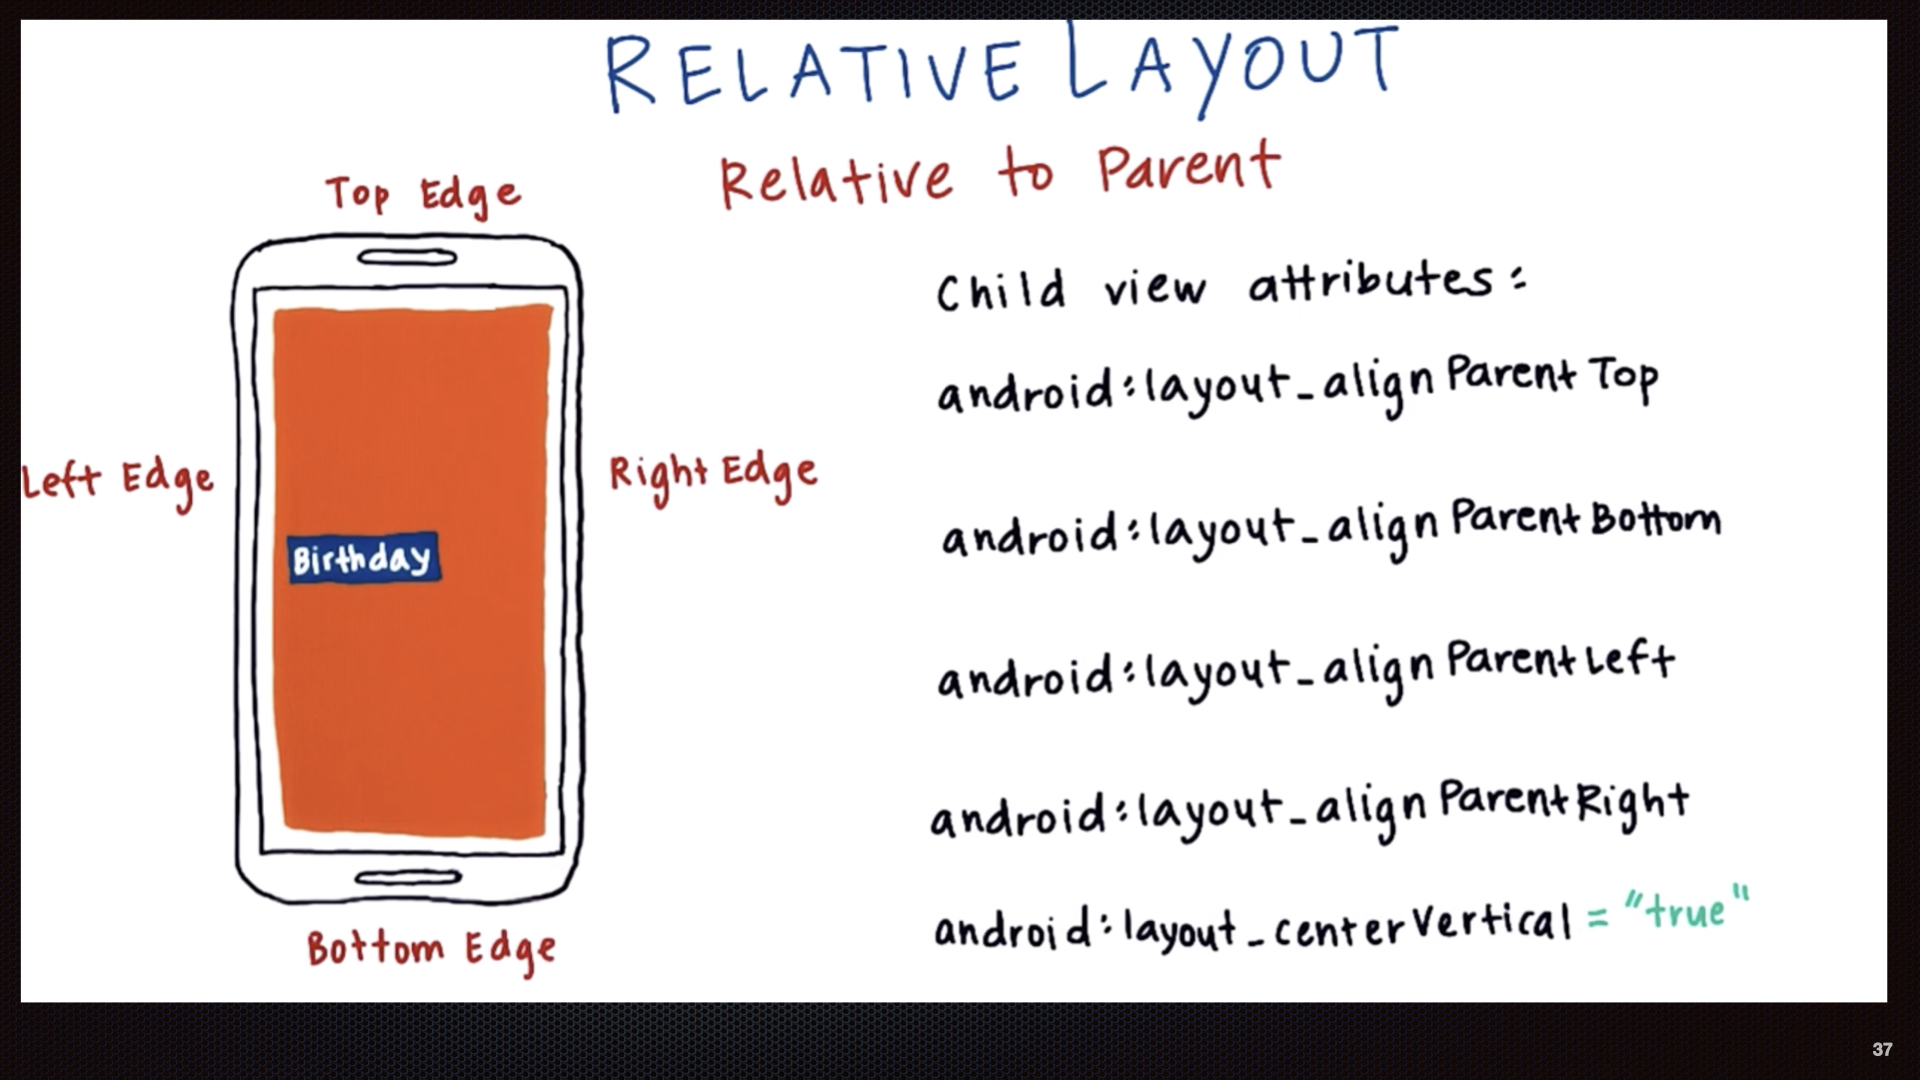 RELATIVE LAYOUT
Relative to Parent
Top Edge
Left Edge
Right Edge
Birthday
Bottom Edge
Child view attributes:
android:layout_alignParentTop
android:layout_alignParentBottom
android:layout_alignParentLeft
android:layout_alignParentRight
android:layout_centerVertical = "true"
37